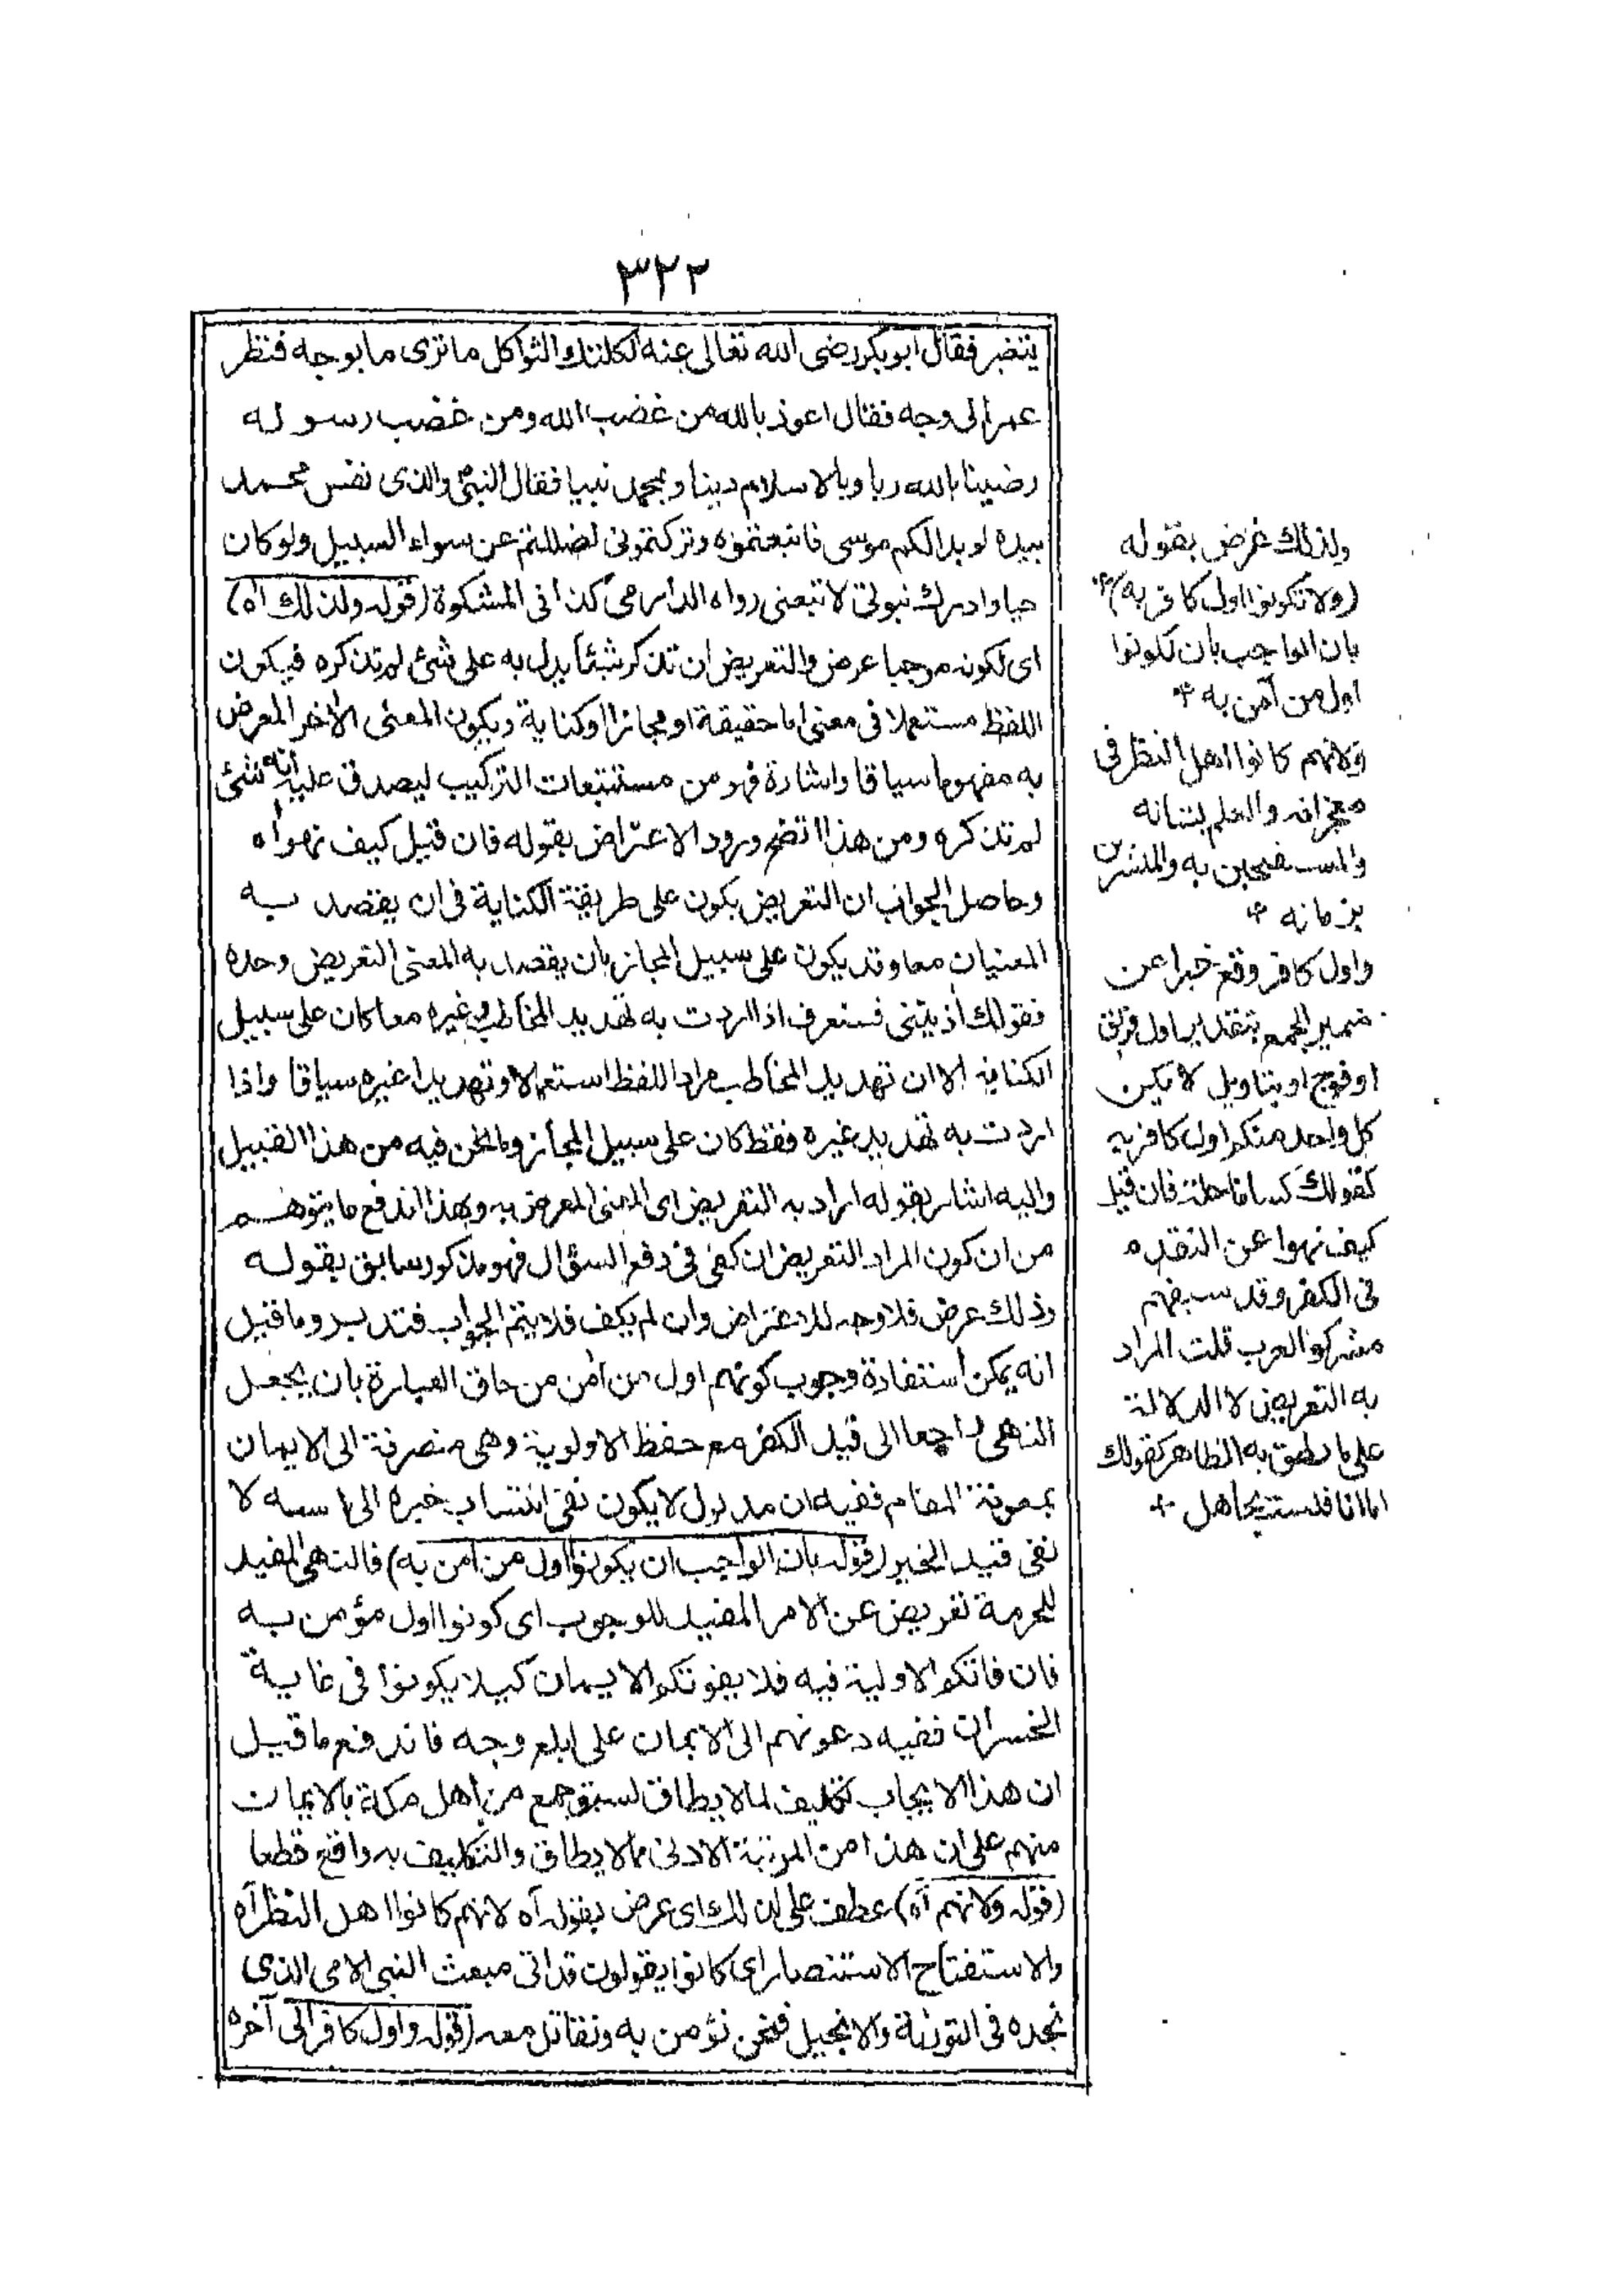 ٣٢٢
يتغير فقال ابو بكر رضى الله تعالى عنه ثكلتك الثواكل ما ترى ما بوجه فنظر
عمر الى وجه فقال اعوذ بالله من غضب الله ومن غضب رسوله
رضينا بالله ربا وبالاسلام دينا وبمحمد نبيا فقال النبى والذى نفس محمد
بيده لو بدا لكم موسى فاتبعتموه وتركتمونى لضللتم عن سواء السبيل ولو كان
حيا وادرك نبوتى لاتبعنى رواه الدارمى كذا فى المشكوة (قوله ولذلك اه)
اى لكونه موجبا عرض والتعريض ان تذكر شيئا يدل به على شئ لم تذكره فيكون
اللفظ مستعملا فى معنى اما حقيقة او مجازا او كناية ويكون المعنى الاخر المعرض
به مفهوما سياقا واشارة فهو من مستتبعات التركيب ليصدق عليه انه شئ
لم تذكره ومن هذا اتضح ورود الاعتراض بقوله فان قيل كيف نهوا اه
وحاصل الجواب ان التعريض يكون على طريقة الكناية فى ان يقصد به
المعنيان معا وقد يكون على سبيل المجاز بان يقصد به المعنى التعريض وحده
فقولك اذيتنى فستعرف اذا اردت به تهديد المخاطب وغيره معا كان على سبيل
الكناية الا ان تهديد المخاطب مراد اللفظ استعمالا وتهديد غيره سياقا واذا
اردت به تهديد غيره فقط كان على سبيل المجاز وما نحن فيه من هذا القبيل
واليه اشار بقوله اراد به التعريض اى المعنى المعرض به وبهذا اندفع ما يتوهم
من ان كون المراد التعريض ان كفى فى دفع السؤال فهو مذكور سابق بقوله
وذلك عرض فلا وجه للاعتراض وان لم يكف فلا يتم الجواب فتدبر وما قيل
انه يمكن استفادة وجوب كونهم اول من آمن من حاق العبارة بان يجعل
النهى راجعا الى قيد الكفر مع حفظ الاولوية وهى منصرفة الى الايمان
بمعونة المقام ففيه ان مدلول لا يكون نفى انتساب خبره الى اسمه لا
نفى قيد الخبر (قوله بان الواجب ان يكونوا اول من آمن به) فالنهى المفيد
للحرمة تعريض عن الامر المفيد للوجوب اى كونوا اول مؤمن به
فان فاتكم الاولية فيه فلا يفوتكم الايمان كيلا يكونوا فى غاية
الخسران ففيه دعوتهم الى الايمان على ابلغ وجه فاندفع ما قيل
ان هذا الايجاب تكليف لما لا يطاق لسبق جمع من اهل مكة بالايمان
منهم على ان هذا من المرتبة الادنى مما لا يطاق والتكليف به واقع قطعا
(قوله ولانهم آه) عطف على لذلك اى عرض بقوله آه لانهم كانوا اهل النظر آه
والاستفتاح الاستنصار اى كانوا يقولون قد اتى مبعث النبى الامى الذى
نجده فى التورية والانجيل فنحن نؤمن به ونقاتل معه (قوله واول كافر الى آخره
ولذلك عرض بقوله
(ولا تكونوا اول كافر به)
بان الواجب بان تكونوا
اول من آمن به
ولانهم كانوا اهل النظر فى
معجزاته والعلم بشانه
والمستفتحين به والمبشرين
بزمانه
واول كافر وقع خبرا عن
ضمير الجمع بتقدير اول فريق
او فوج او بتاويل لا يكن
كل واحد منكم اول كافر به
كقولك كسانا حلة فان قيل
كيف نهوا عن التقدم
فى الكفر وقد سبقهم
مشركو العرب قلت المراد
به التعريض لا الدلالة
على ما نطق به الظاهر كقولك
اما انا فلست بجاهل